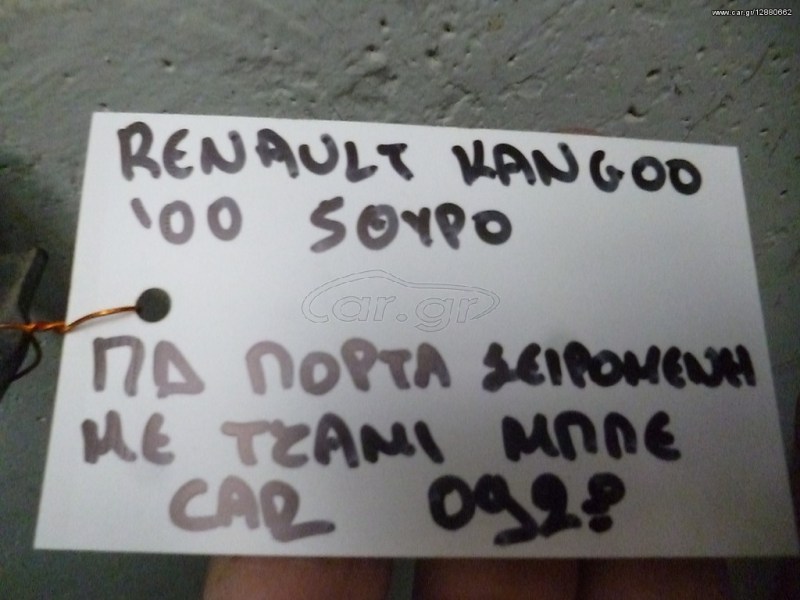 www.car.gr/12880662
RENAULT KANGOO
'00 5ΘΥΡΟ
car.gr
ΠΔ ΠΟΡΤΑ ΣΕΙΡΟΜΕΝΗ
ΜΕ ΤΖΑΜΙ ΜΠΛΕ
CAR 092